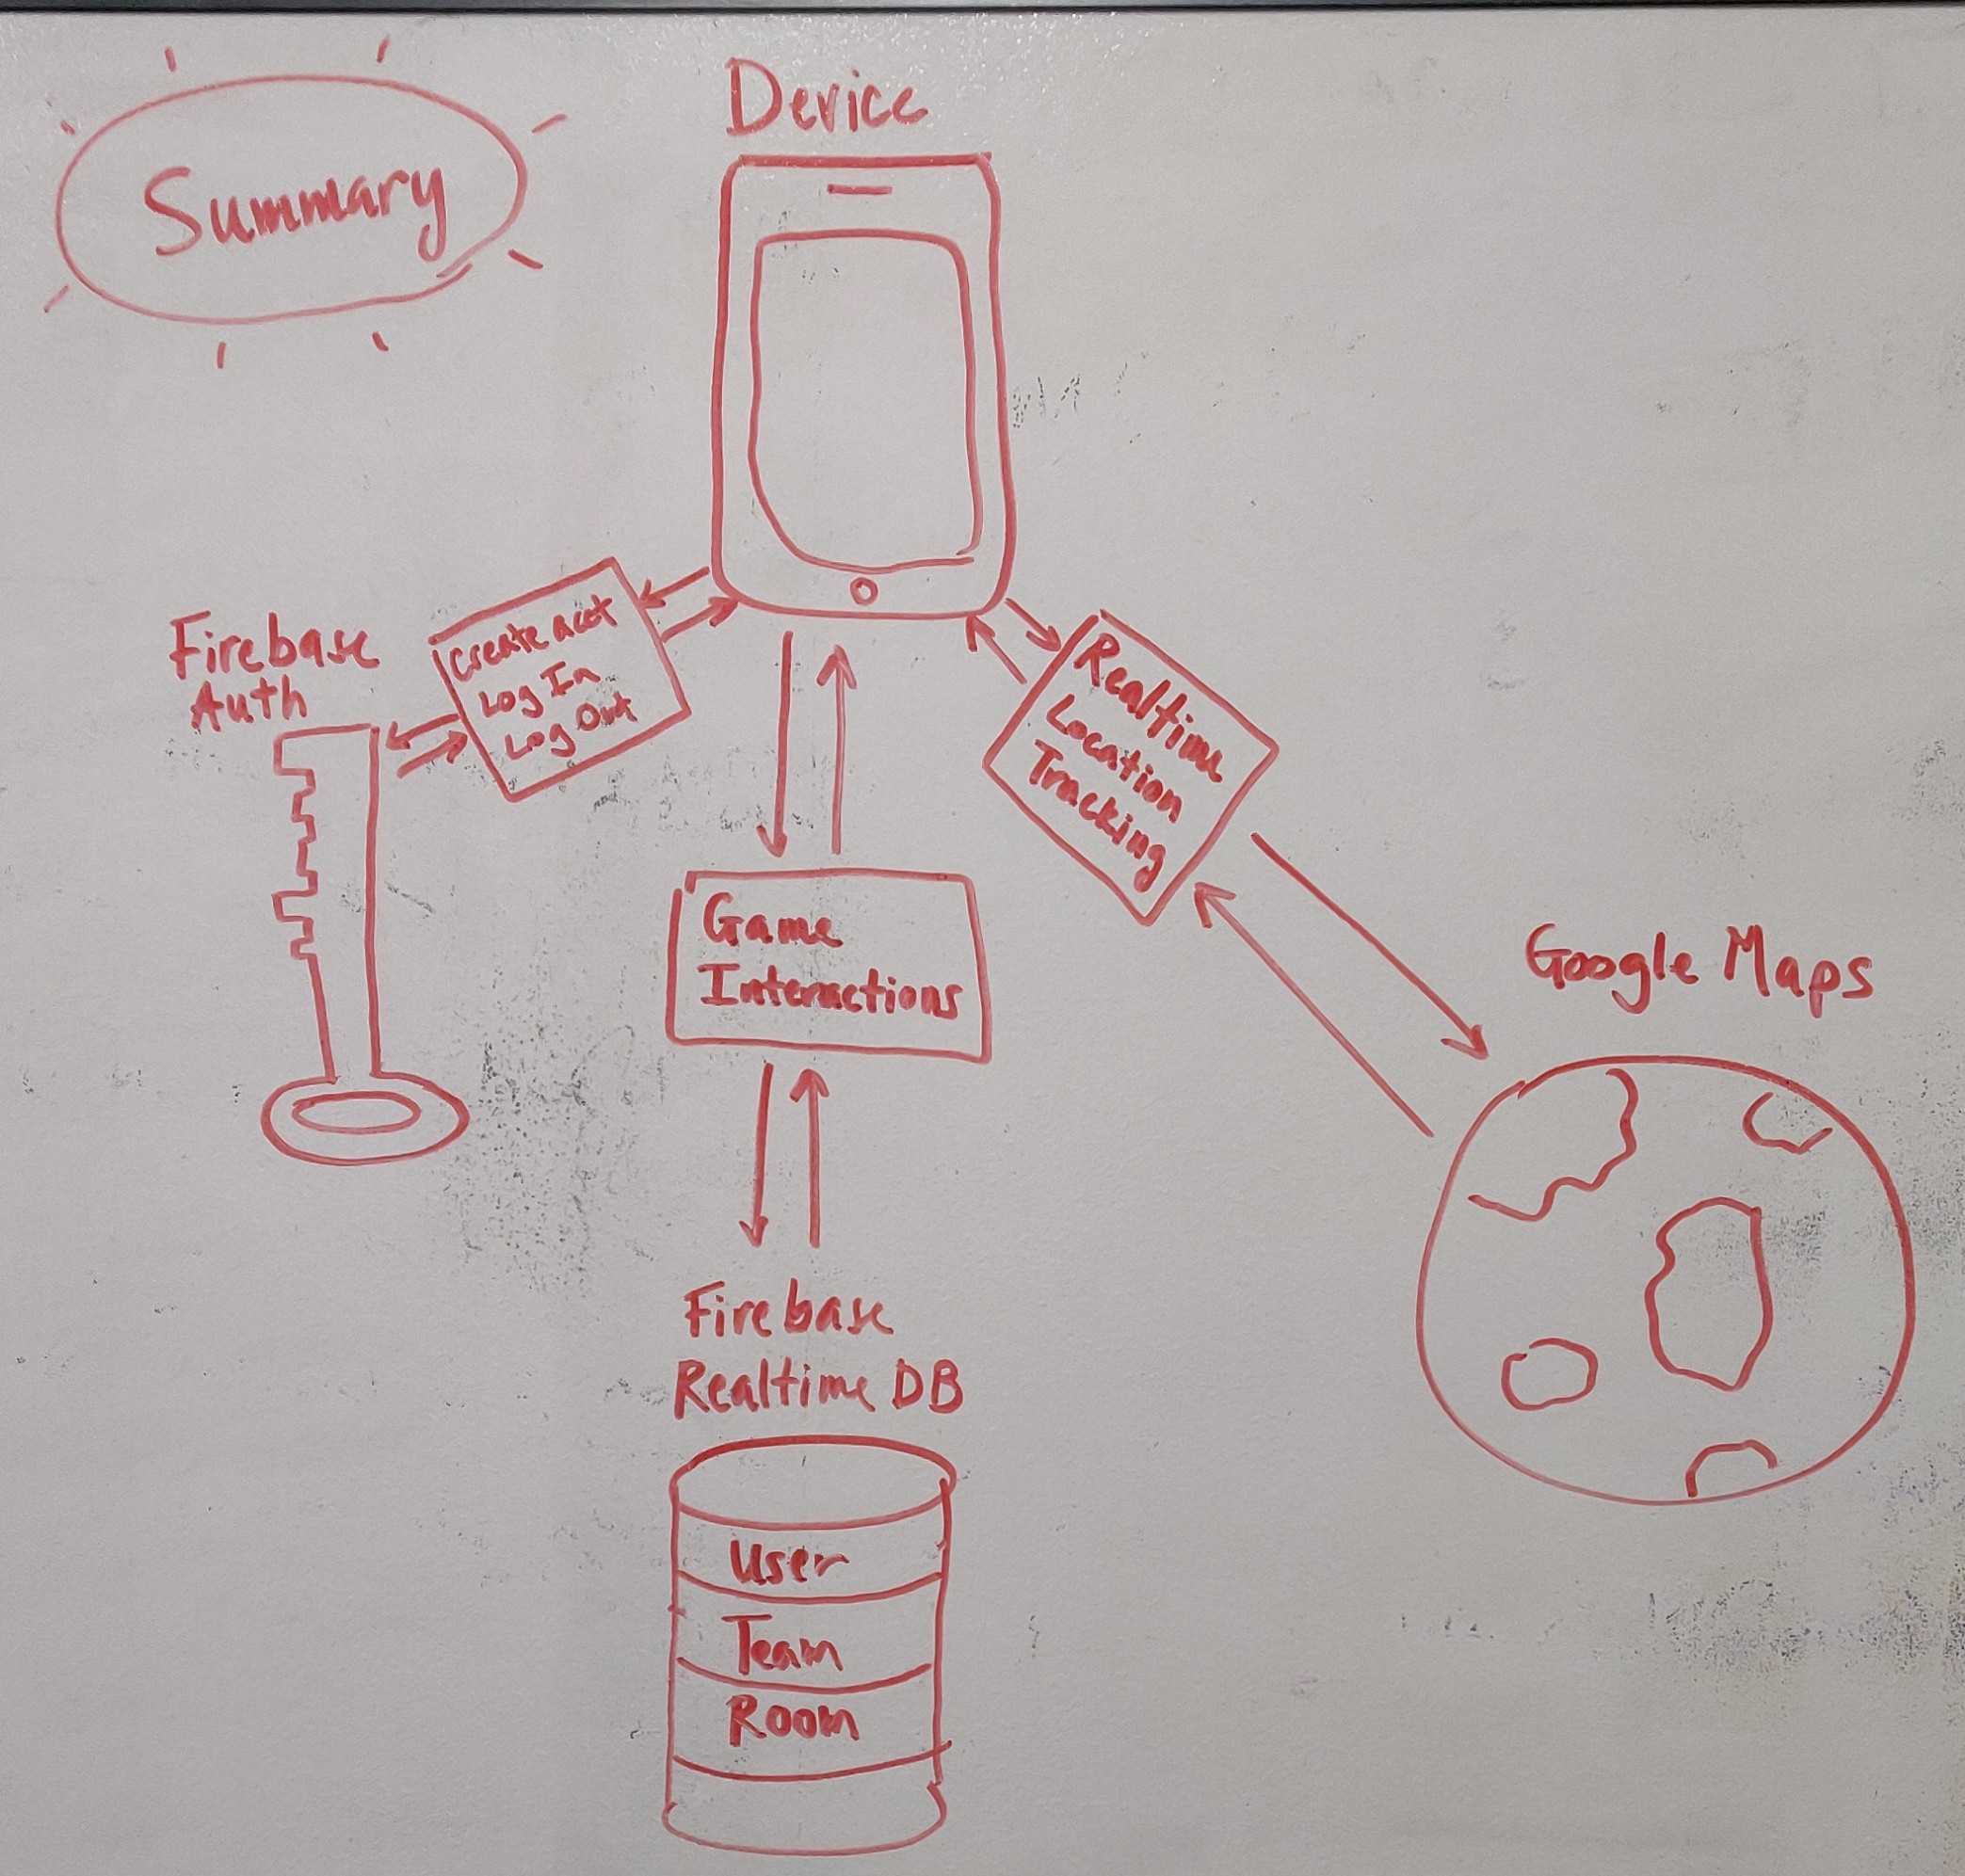 Summary
Device
Firebase
Auth
Create acct
Log In
Log Out
Realtime
Location
Tracking
Game
Interactions
Google Maps
Firebase
Realtime DB
User
Team
Room